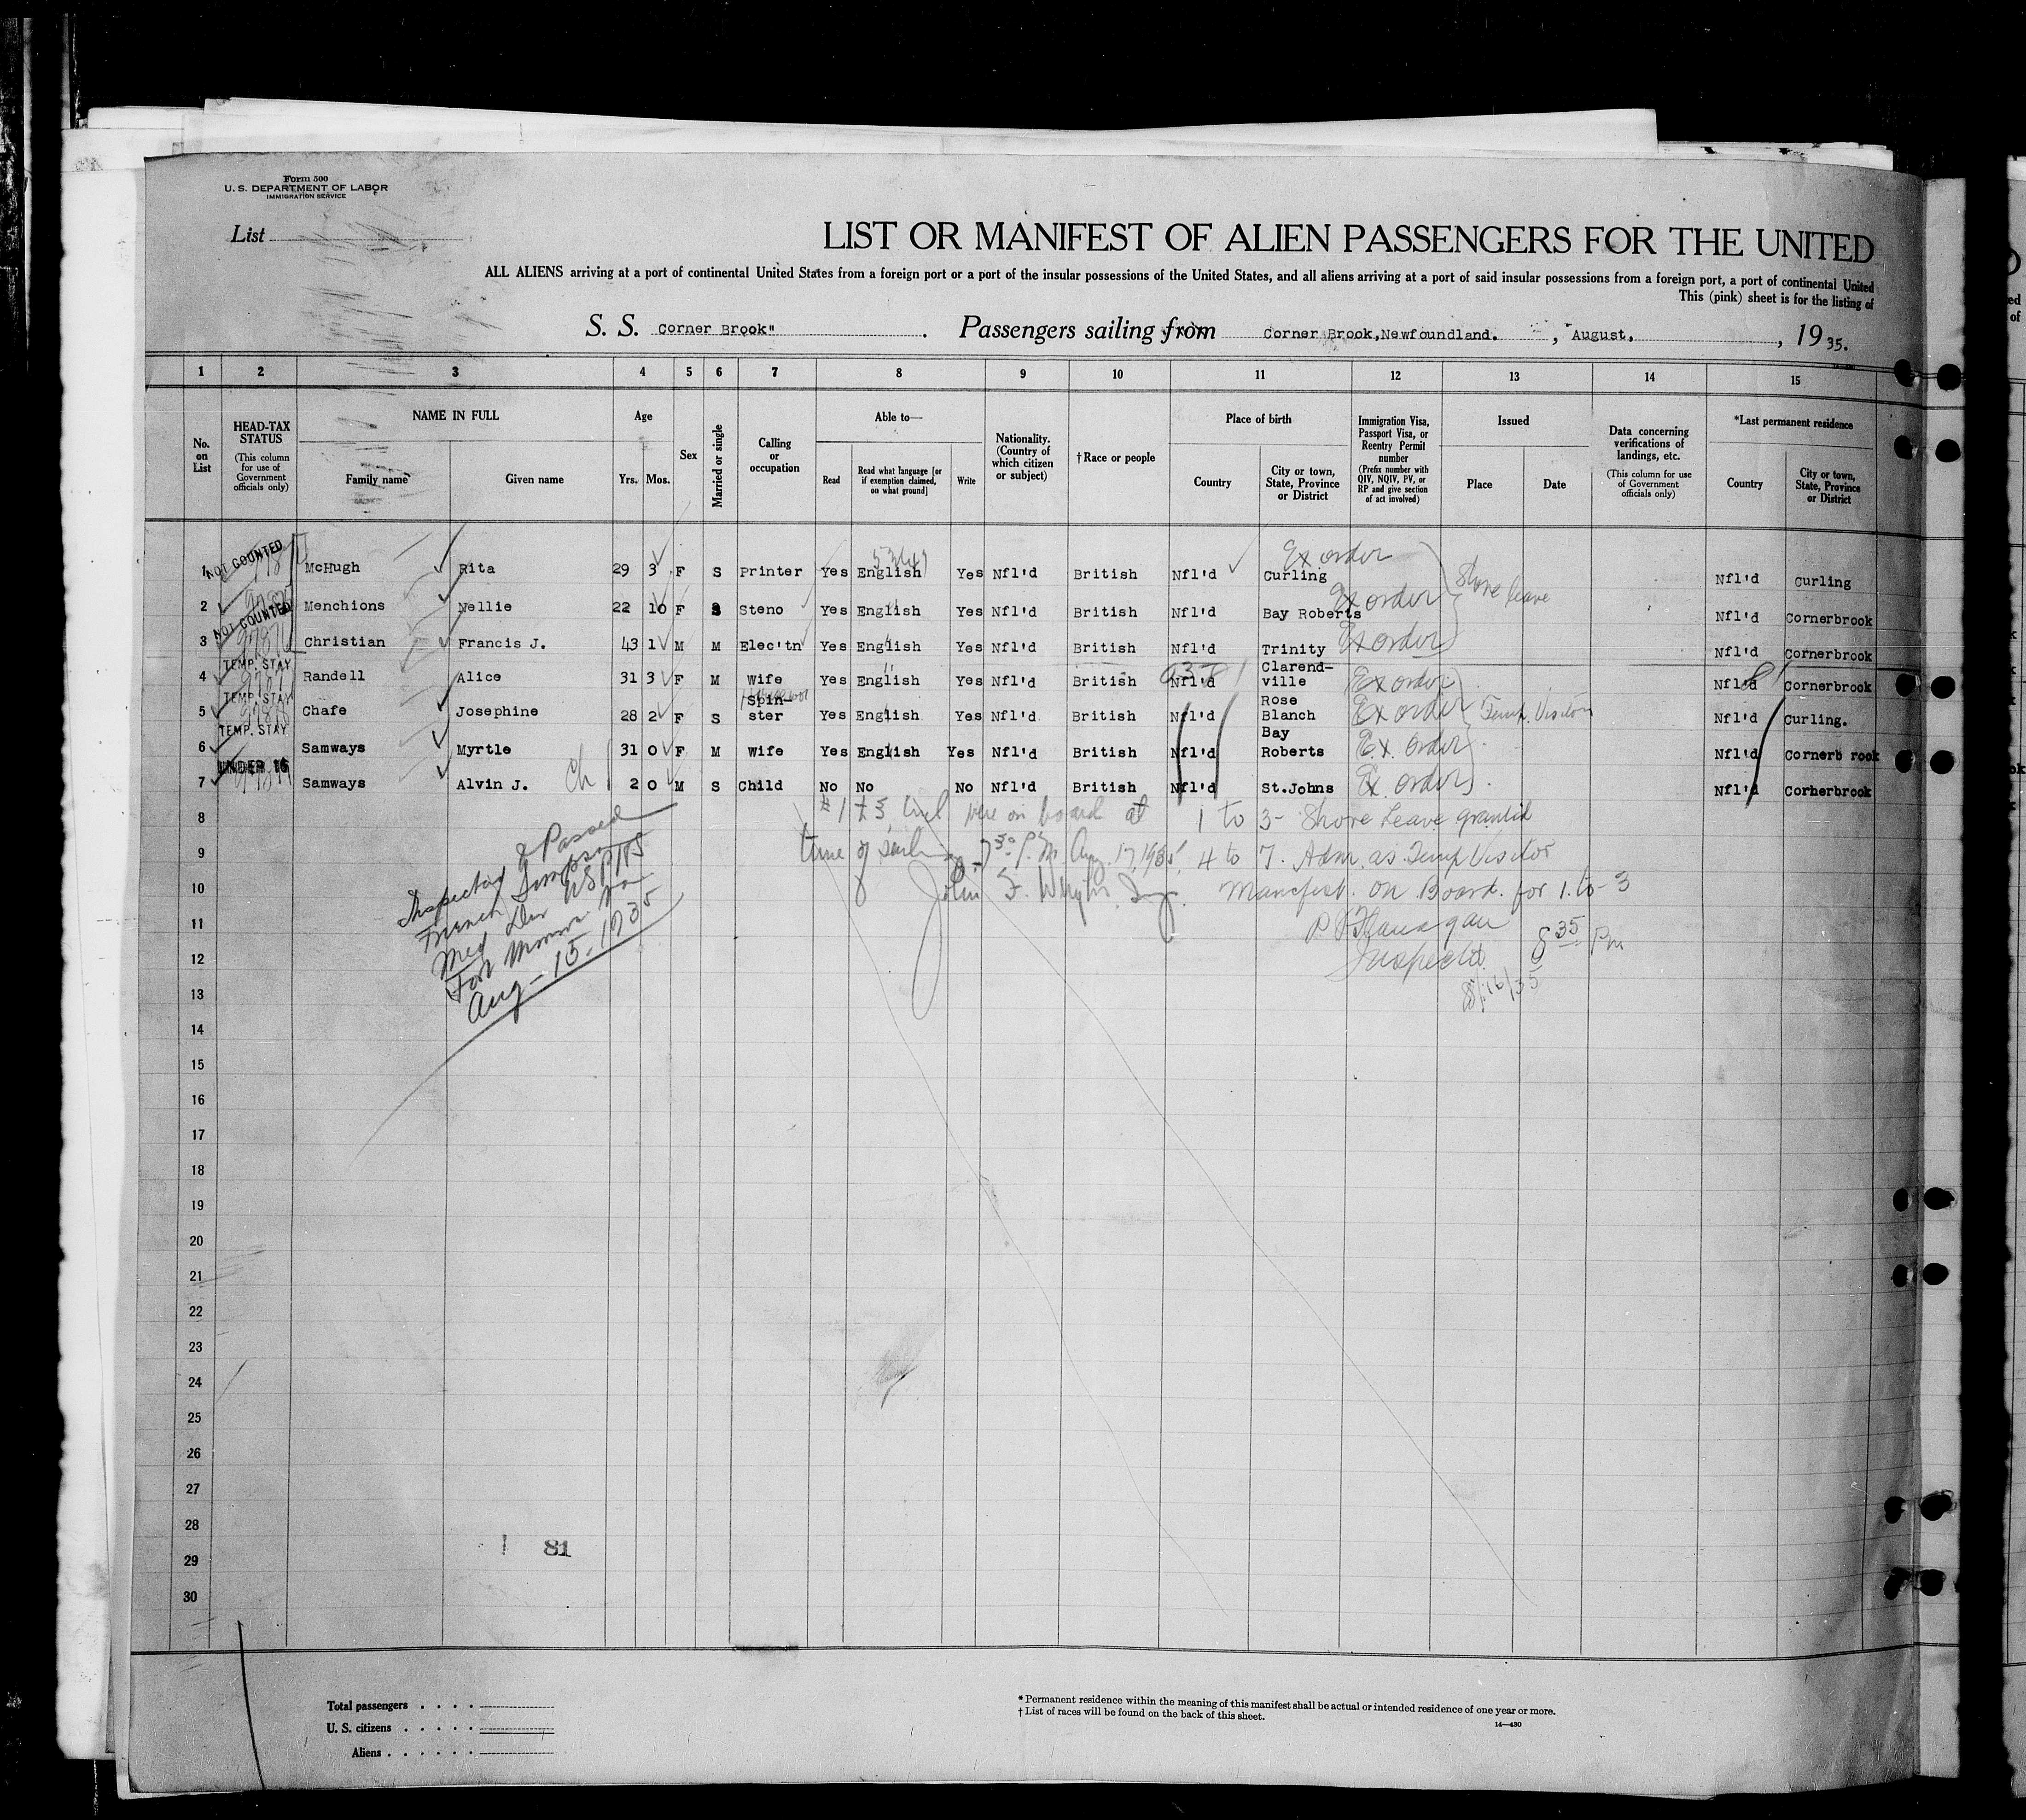 Form 500
U. S. DEPARTMENT OF LABOR
IMMIGRATION SERVICE
List
LIST OR MANIFEST OF ALIEN PASSENGERS FOR THE UNITED
ALL ALIENS arriving at a port of continental United States from a foreign port or a port of the insular possessions of the United States, and all aliens arriving at a port of said insular possessions from a foreign port, a port of continental United
This (pink) sheet is for the listing of
S. S. Corner Brook" . Passengers sailing from Corner Brook,Newfoundland. , August, , 19 35.
1 2 3 4 5 6 7 8 9 10 11 12 13 14 15
No. on List
HEAD-TAX STATUS (This column for use of Government officials only)
NAME IN FULL
Family name Given name
Age
Yrs. Mos.
Sex
Married or single
Calling or occupation
Able to—
Read Read what language [or if exemption claimed, on what ground] Write
Nationality. (Country of which citizen or subject)
†Race or people
Place of birth
Country City or town, State, Province or District
Immigration Visa, Passport Visa, or Reentry Permit number (Prefix number with QIV, NQIV, PV, or RP and give section of act involved)
Issued
Place Date
Data concerning verifications of landings, etc. (This column for use of Government officials only)
*Last permanent residence
Country City or town, State, Province or District
NOT COUNTED
1 McHugh Rita 29 3 F S Printer Yes English Yes Nfl'd British Nfl'd Curling Ex order Nfl'd Curling
2 Menchions Nellie 22 10 F S Steno Yes English Yes Nfl'd British Nfl'd Bay Roberts Ex order Shore leave Nfl'd Cornerbrook
NOT COUNTED
3 Christian Francis J. 43 1 M M Elec'tn Yes English Yes Nfl'd British Nfl'd Trinity Ex order Nfl'd Cornerbrook
TEMP. STAY
4 Randell Alice 31 3 F M Wife Yes English Yes Nfl'd British Nfl'd Clarend-ville Ex order Nfl'd Cornerbrook
TEMP. STAY
5 Chafe Josephine 28 2 F S Spin-ster Yes English Yes Nfl'd British Nfl'd Rose Blanch Ex order Temp. Visitor Nfl'd Curling.
TEMP. STAY
6 Samways Myrtle 31 0 F M Wife Yes English Yes Nfl'd British Nfl'd Bay Roberts Ex. order Nfl'd Cornerb rook
UNDER 16
7 Samways Alvin J. Ch 2 0 M S Child No No No Nfl'd British Nfl'd St.Johns Ex order Nfl'd Corherbrook
8
9
10
11
12
13
14
15
16
17
18
19
20
21
22
23
24
25
26
27
28
29
30
#1 to 3, incl. were on board at
time of sailing 7 30 P.M. Aug. 17, 1935
John F. Insp.
1 to 3- Shore Leave granted
4 to 7. Adm. as Temp Visitor
Manifest. on Board. for 1. to 3
P Flanagan
Inspector 8 35 Pm
8/16/35
Inspected & Passed
French Simpson
Med Dir USPHS
Fort Monroe Va
Aug-15-1935
81
Total passengers . . . .
U. S. citizens . . . . .
Aliens . . . . . .
* Permanent residence within the meaning of this manifest shall be actual or intended residence of one year or more.
† List of races will be found on the back of this sheet.
14—430